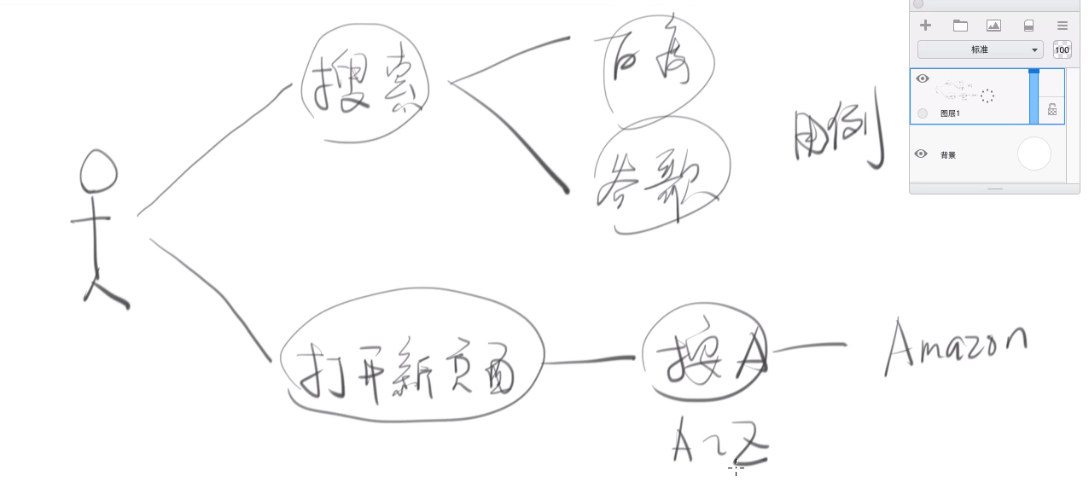 搜索
百度
谷歌
用例
打开新页面
按A
Amazon
A~Z
标准
100
图层1
背景